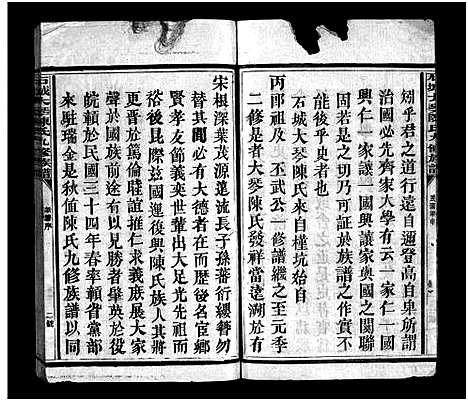 矧乎君之道行遠自邇登高自卑所謂
治國必先齊家大學有云一家仁一國
興仁一家讓一國興讓家與國之關聯
固若是之切乃可証於族譜之作實不
能後乎史者也
石城大琴陳氏來自橫坑始自
丙郎祖及 丕武公一修譜繼之至元季
二修是者大琴陳氏發祥當遠溯於有
宋根深葉茂源遠流長子孫蕃衍纓簪勿
替其間必有大德者在而歷後名宦鄉
賢孝友節義奕世輩出大足光先祖而
裕後昆際茲國運復興陳氏族人其將
晋於篤倫睦誼推仁求義族展大家
聲於國族前途有以見勝者肇英於役
皖贛於民國三十四年春率贛省黨部
來駐瑞金是秋值陳氏九修族譜以同
石城大琴陳氏九修族譜